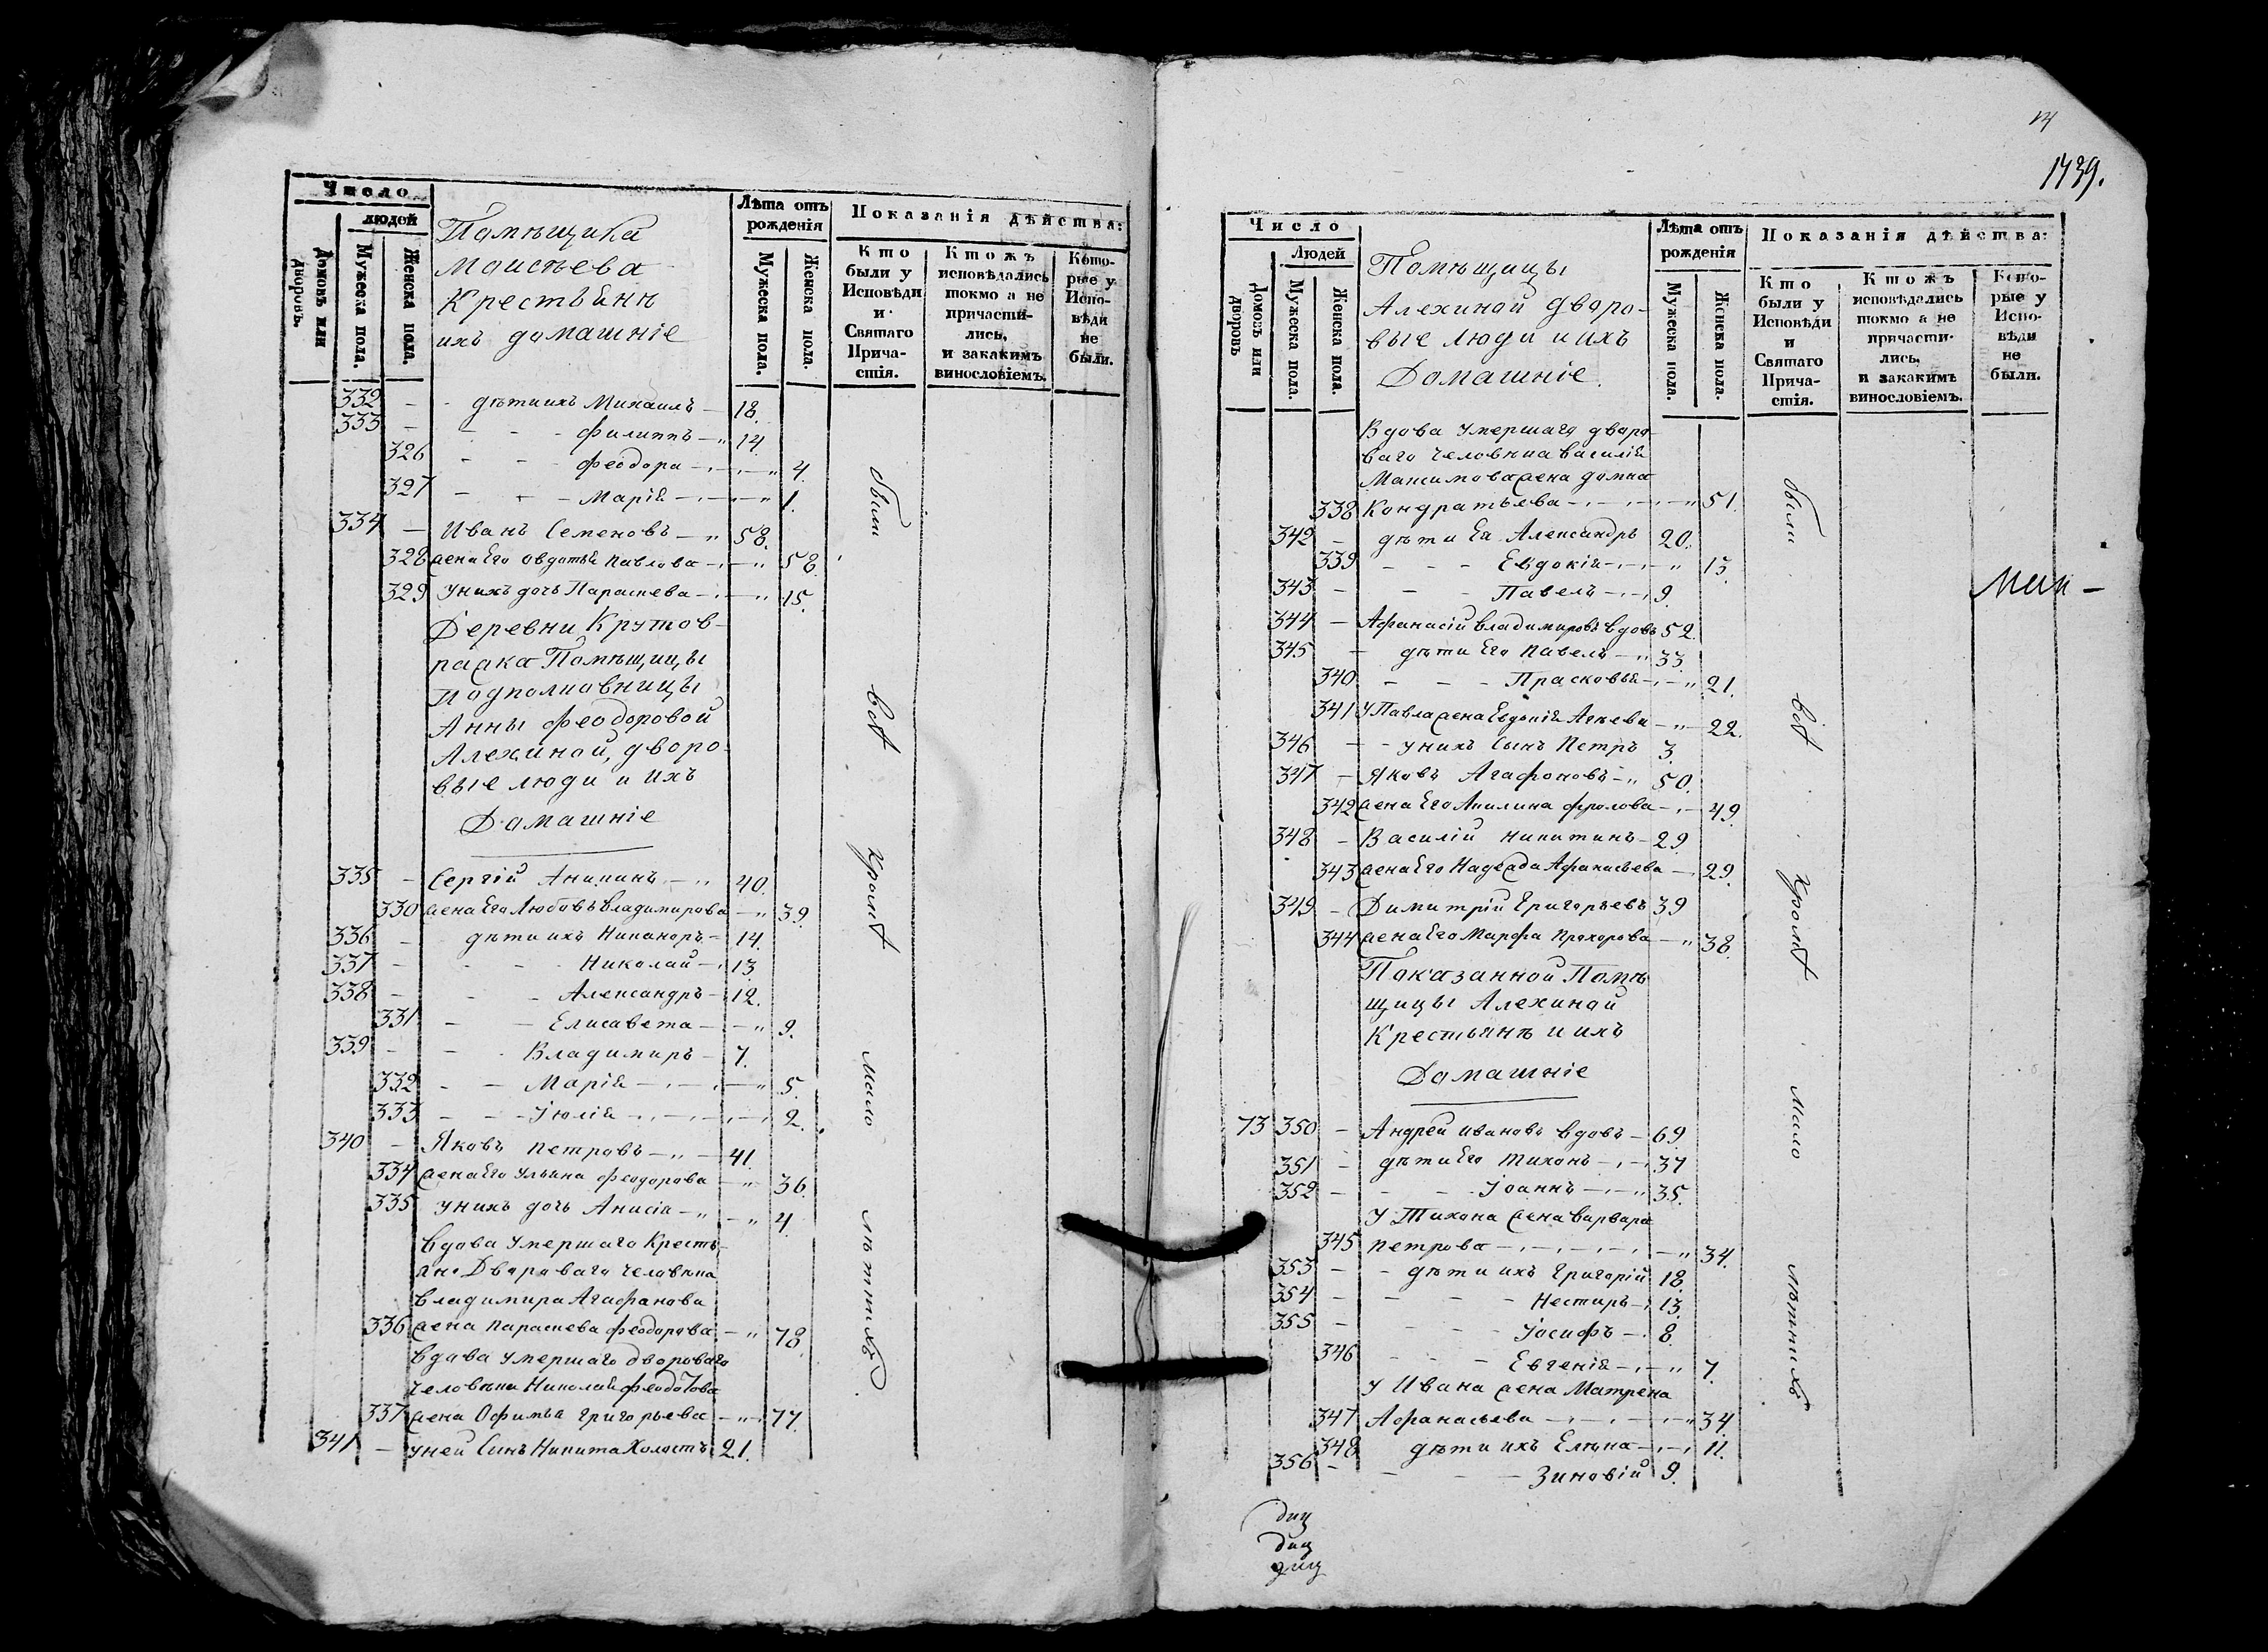 Число
людей
Домовъ или дворовъ.
Мужеска пола.
Женска пола.
Помѣщика
Моисѣева
Крестьянѣ
ихъ домашніе
Лѣта отъ рожденія
Мужеска пола.
Женска пола.
Показанія дѣйства:
Кто были у Исповѣди и Святаго Причастія.
Ктожъ исповѣдались токмо а не причастились, и закакимъ винословіемъ.
Которые у Исповѣди не были.
332 - - дѣти ихъ Михаилъ - 18.
333 - - - - Филиппъ - " 14.
326 - - Феодора - " 4.
327 - - - Марія - " 1.
334 - Иванъ Семеновъ - " 58.
328 жена Его Овдотья Павлова - " 58.
329 у нихъ дочь Параскева - " 15.
Деревни Крутов-
ражка Помѣщицы
подполковницы
Анны Феодоровой
Алехиной, дворо-
вые люди и ихъ
Домашніе
335 - Сергій Аникинъ - " 40.
330 жена Его Любовь Владимирова - " 39.
336 - дѣти ихъ Никаноръ - 14.
337 - - - Николай - 13
338 - - - Александръ - 12.
331 - - Елисавета - " 9.
339 - - - Владимиръ - 7.
332 - - Марія - " 5.
333 - - - Іюлія - 2.
340 - Яковъ Петровъ - " - 41.
334 жена Его Ульяна Феодорова - " 36.
335 у нихъ дочь Анисія - " - " 4.
Вдова умершаго Кресть-
ян. Двороваго человѣка
Владимира Агафонова
336 жена Параскева Феодорова - " 78.
Вдова умершаго двороваго
человѣка Николая Феодотова
337 жена Офимья Григорьева - " - 77.
341 - у ней Сынъ Никита Холостъ 21.
были всѣ кромѣ мало лѣтнихъ
1739.
Число
Людей
Домовъ или дворовъ
Мужеска пола.
Женска пола.
Помѣщицы
Алехиной дворо-
вые люди и ихъ
Домашніе.
Лѣта отъ рожденія
Мужеска пола.
Женска пола.
Показанія дѣйства:
Кто были у Исповѣди и Святаго Причастія.
Ктожъ исповѣдались токмо а не причастились, и закакимъ винословіемъ.
Которые у Исповѣди не были.
Вдова умершаго дворо-
ваго человѣка Василія
Максимова жена Домна
338 Кондратьева - " 51.
342 - дѣти Ея Александръ 20.
339 - - - Евдокія - " 13.
343 - - - Павелъ - 9.
344 - Афанасій Владимировъ вдовъ 52.
345 - дѣти Его Павелъ - " 33.
340 - - - Прасковья - " 21.
341 У Павла жена Евдокія Агѣева - " - 22.
346 - - у нихъ Сынъ Петръ 3.
347 - Яковъ Агафоновъ - " 50.
342 жена Его Акилина Фролова - 49.
348 - Василій Никитинъ - 29
343 жена Его Надежда Афанасьева - 29.
349 - Димитрій Григорьевъ 39
344 жена Его Марфа Прохорова - " 38.
Показанной Помѣ-
щицы Алехиной
Крестьянѣ и ихъ
Домашніе
73 350 - Андрей Ивановъ вдовъ - 69
351 - дѣти Его Тихонъ - 37
352 - - - Іоаннъ - " 35.
У Тихона жена Варвара
345 Петрова - " 34.
353 - - дѣти ихъ Григорій 18
354 - - - - Нестиръ - 13.
355 - - - - Іосифъ - 8.
346 - - - Евгенія - " 7.
У Ивана жена Матрена
347 Афанасьева - " 34.
348 дѣти ихъ Елѣна - 11.
356 - - - - Зиновій 9.
были всѣ кромѣ мало лѣтнихъ